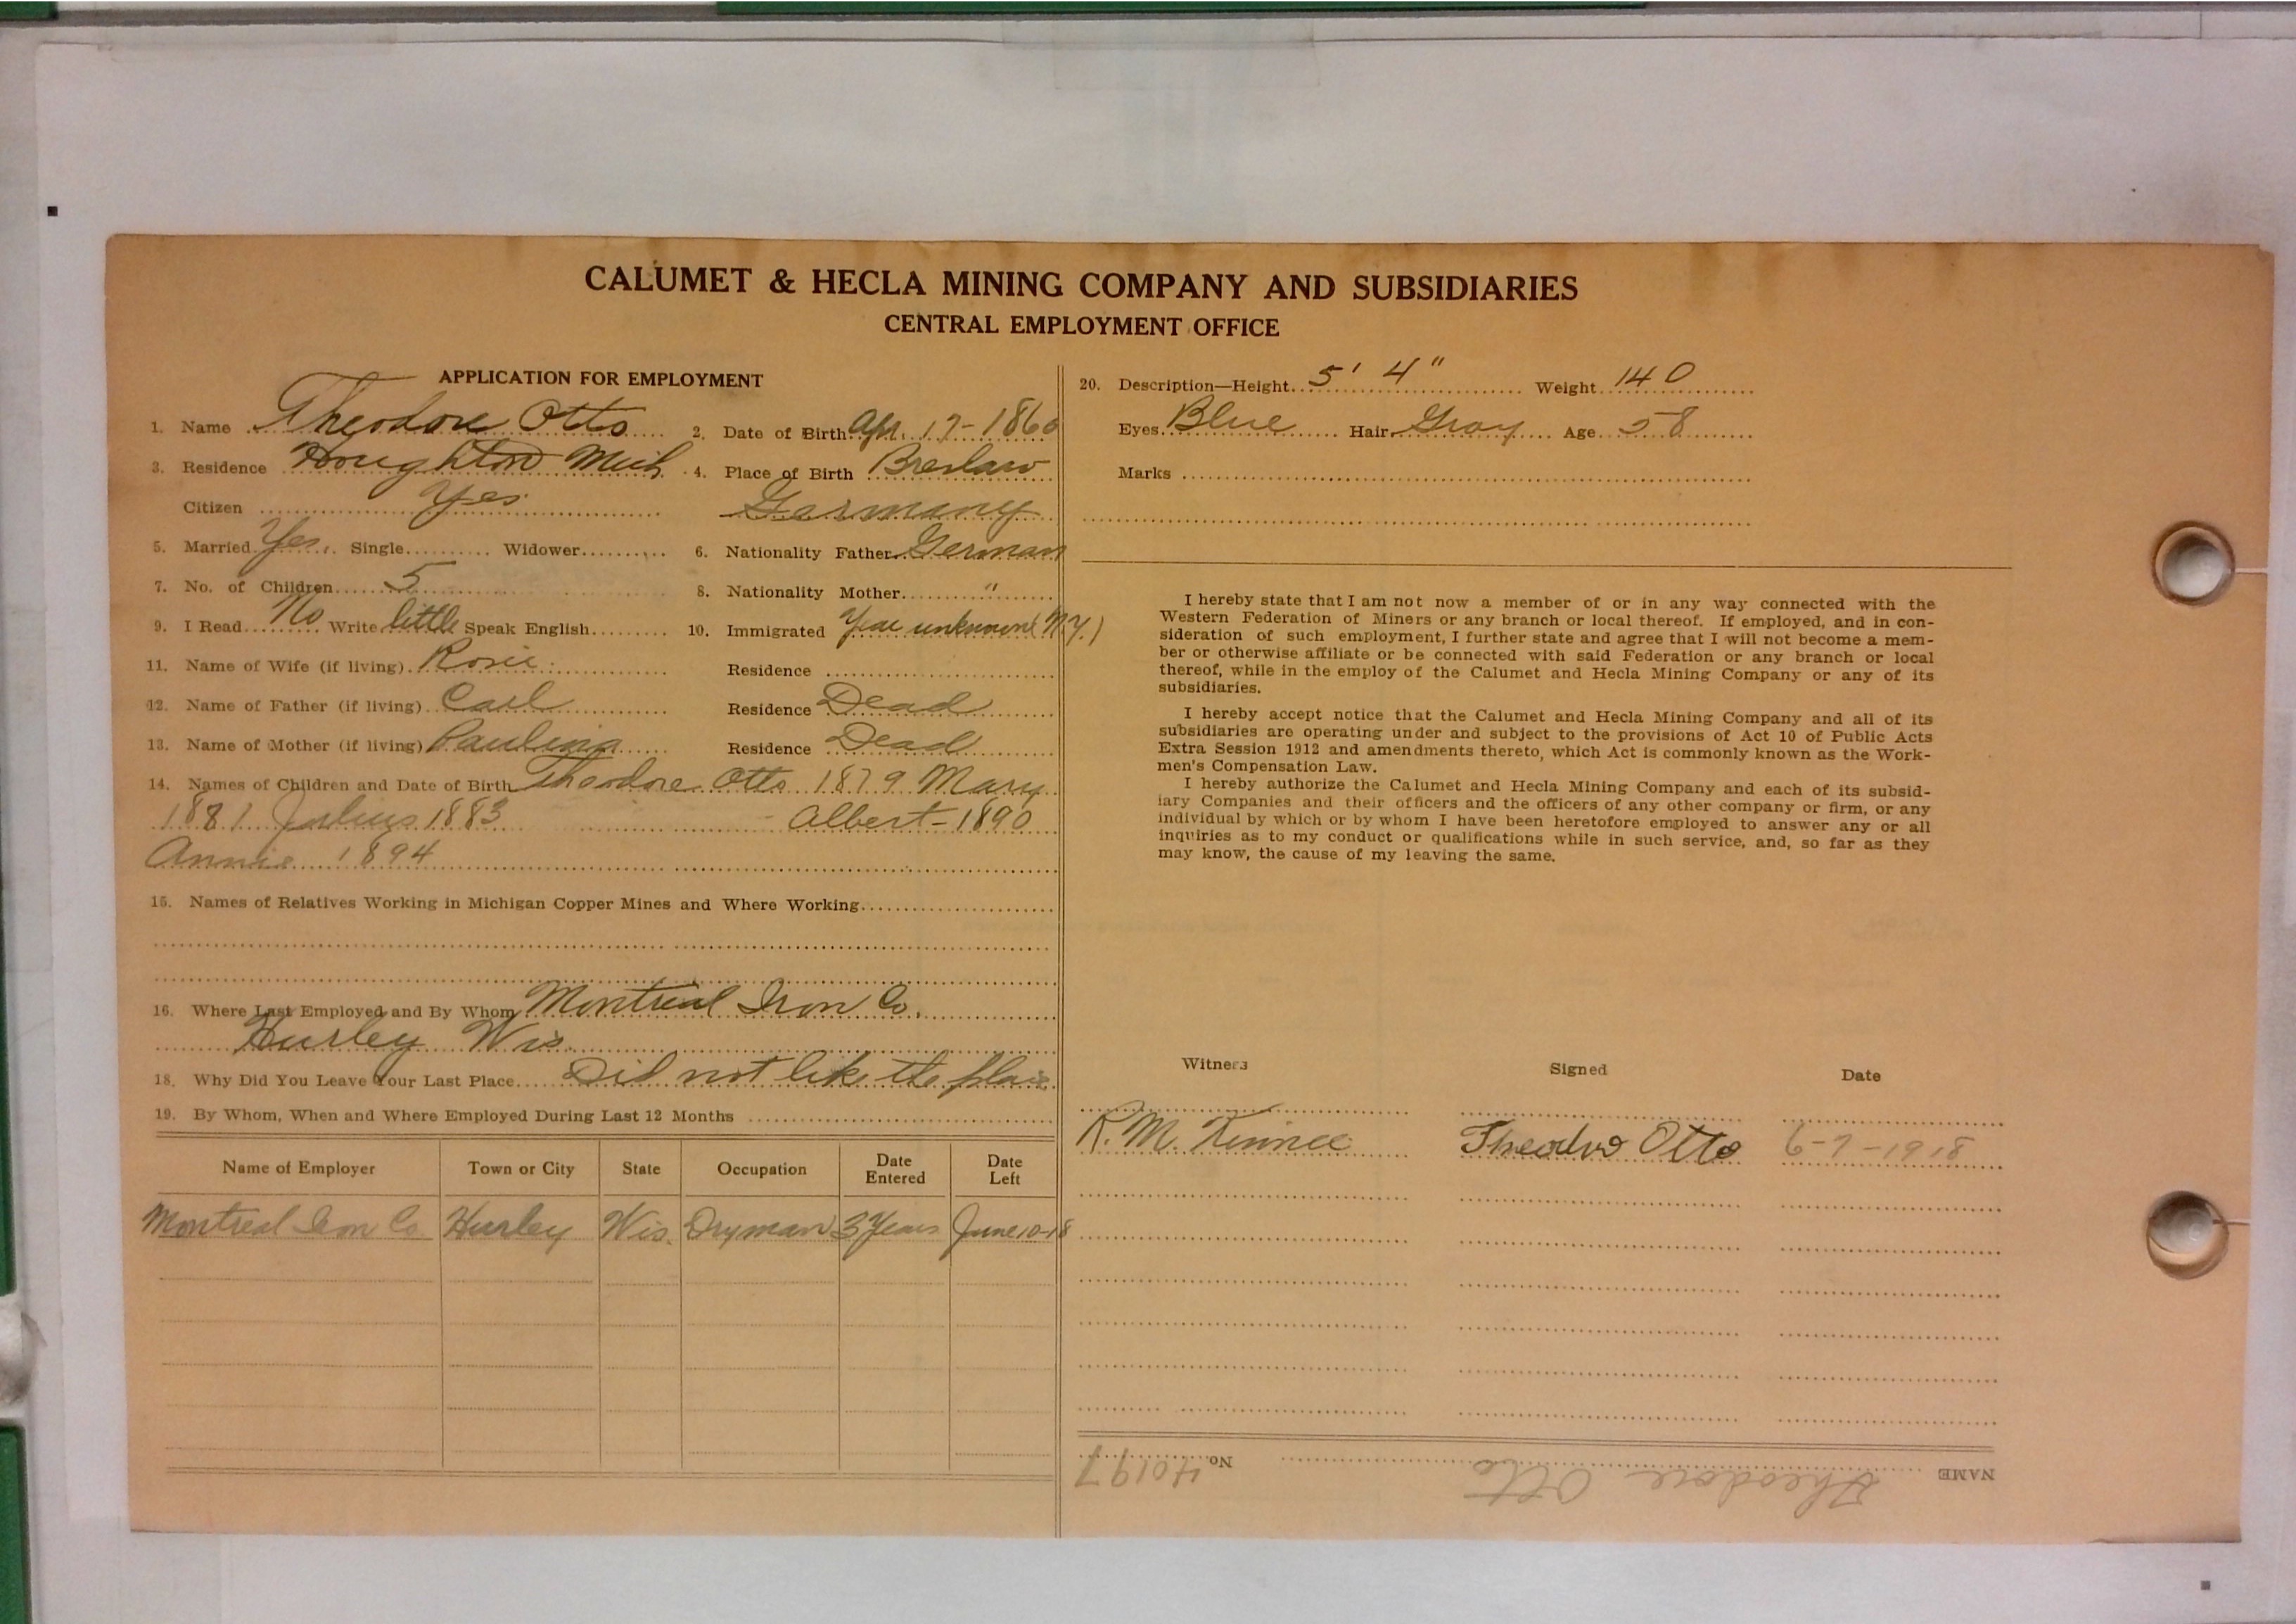 CALUMET & HECLA MINING COMPANY AND SUBSIDIARIES
CENTRAL EMPLOYMENT OFFICE
APPLICATION FOR EMPLOYMENT
1. Name Theodore Otto 2. Date of Birth Apr. 17-1860
3. Residence Houghton Mich 4. Place of Birth Breslaw
Citizen Yes Germany
5. Married Yes. Single Widower 6. Nationality Father German
7. No. of Children 5 8. Nationality Mother "
9. I Read No Write little Speak English 10. Immigrated Year unknown (N.Y.)
11. Name of Wife (if living) Rosie Residence
12. Name of Father (if living) Carl Residence Dead
13. Name of Mother (if living) Paulina Residence Dead
14. Names of Children and Date of Birth Theodore Otto 1879 Mary
1881 Julius 1883 Albert-1890
Annie 1894
15. Names of Relatives Working in Michigan Copper Mines and Where Working
16. Where Last Employed and By Whom Montreal Iron Co.
Hurley Wis.
18. Why Did You Leave Your Last Place Did not like the place
19. By Whom, When and Where Employed During Last 12 Months
Name of Employer Town or City State Occupation Date Entered Date Left
Montreal Iron Co Hurley Wis. Dryman 3 Years June 10-18
20. Description—Height 5' 4" Weight 140
Eyes Blue Hair Gray Age 58
Marks
I hereby state that I am not now a member of or in any way connected with the
Western Federation of Miners or any branch or local thereof. If employed, and in con-
sideration of such employment, I further state and agree that I will not become a mem-
ber or otherwise affiliate or be connected with said Federation or any branch or local
thereof, while in the employ of the Calumet and Hecla Mining Company or any of its
subsidiaries.
I hereby accept notice that the Calumet and Hecla Mining Company and all of its
subsidiaries are operating under and subject to the provisions of Act 10 of Public Acts
Extra Session 1912 and amendments thereto, which Act is commonly known as the Work-
men's Compensation Law.
I hereby authorize the Calumet and Hecla Mining Company and each of its subsid-
iary Companies and their officers and the officers of any other company or firm, or any
individual by which or by whom I have been heretofore employed to answer any or all
inquiries as to my conduct or qualifications while in such service, and, so far as they
may know, the cause of my leaving the same.
Witness Signed Date
R. M. Kinnee Theodro Otto 6-7-1918
NAME Theodore Otto No. 40197